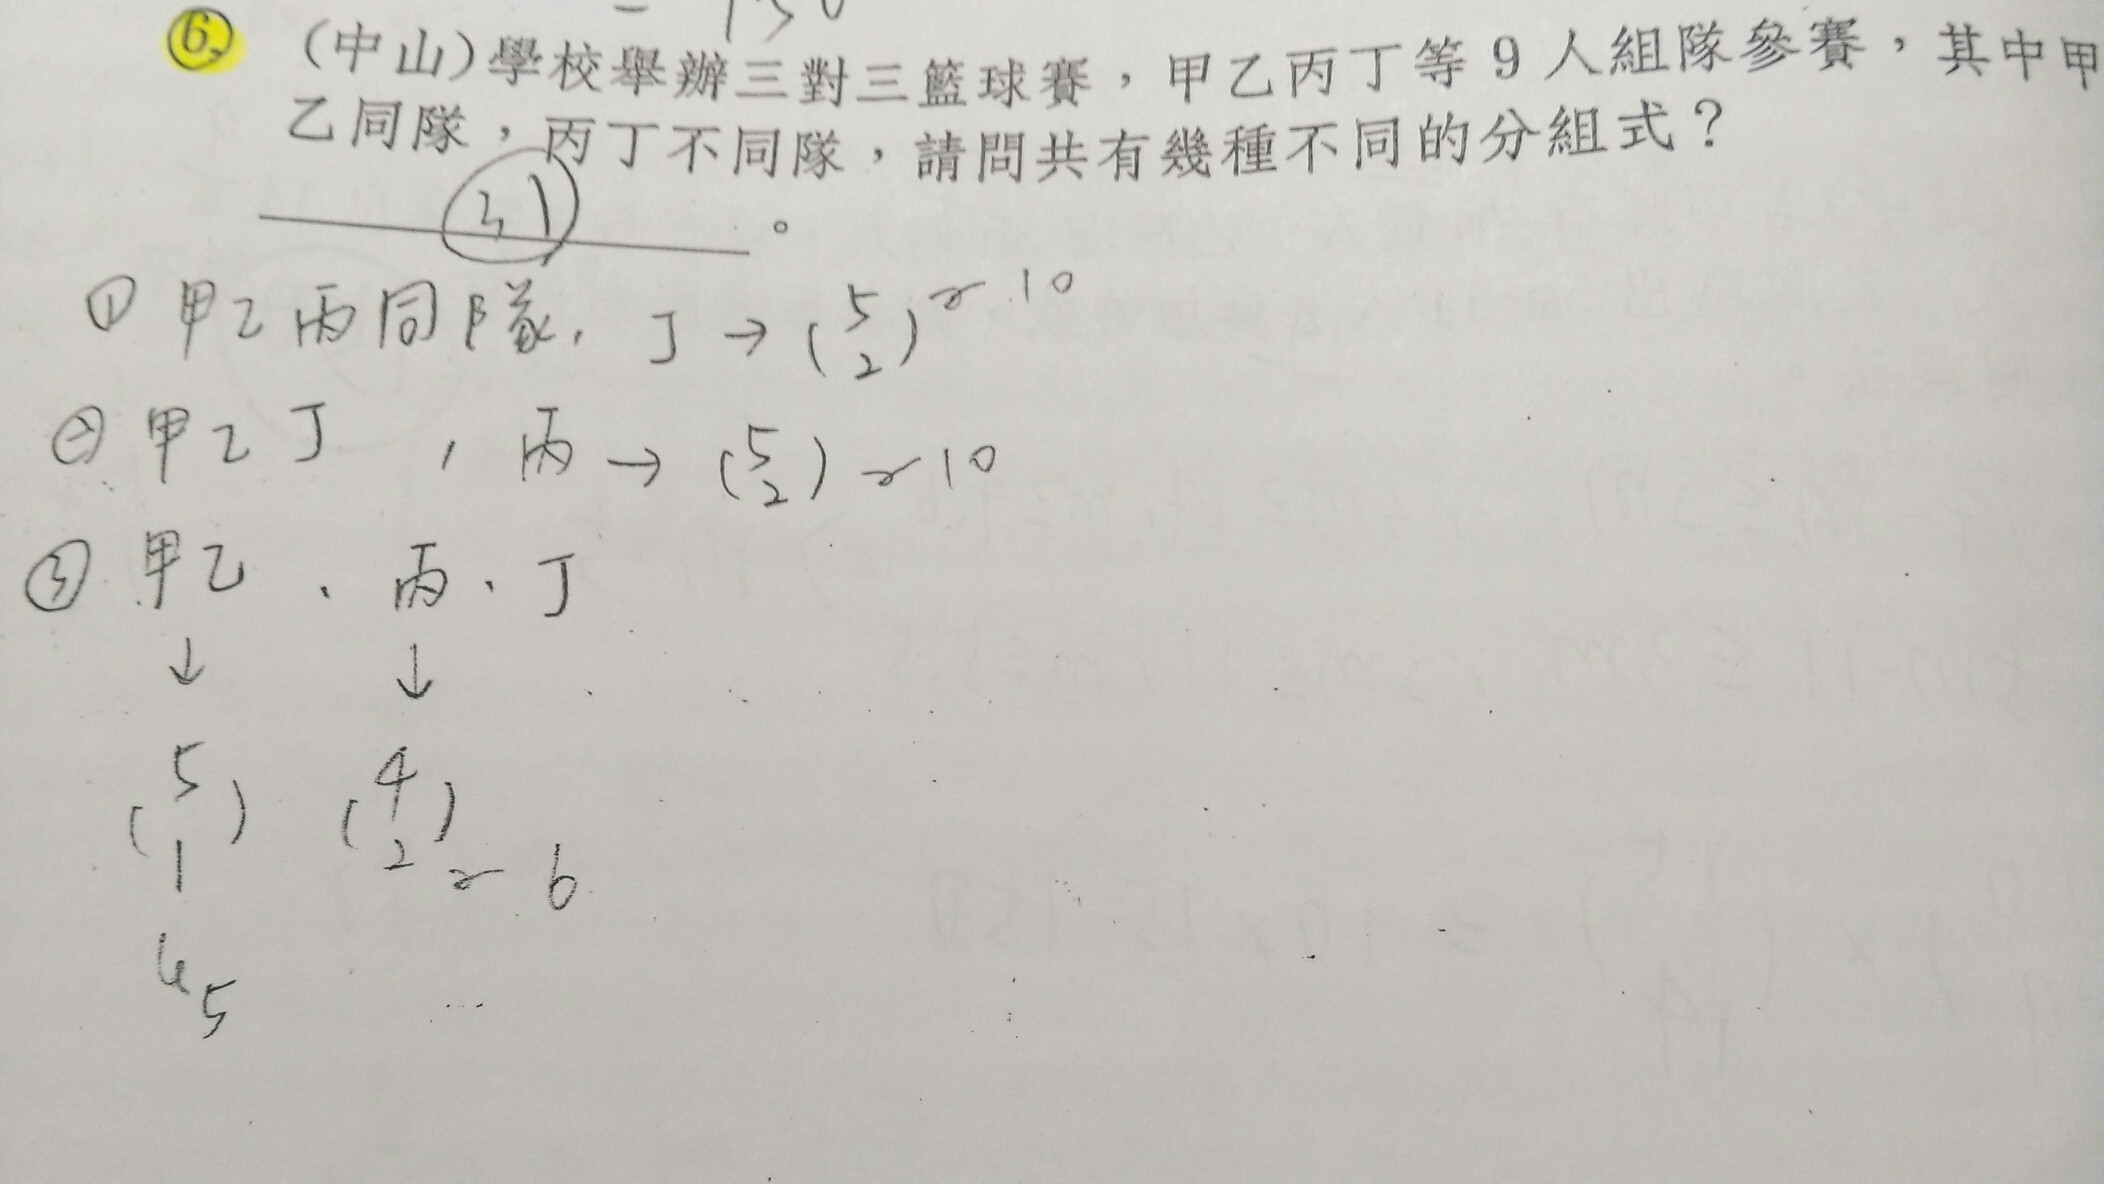 = 150
6. (中山)學校舉辦三對三籃球賽,甲乙丙丁等9人組隊參賽,其中甲
乙同隊,丙丁不同隊,請問共有幾種不同的分組式?
31 。
① 甲乙丙同隊, 丁 → (5 2) 10
② 甲乙丁 , 丙 → (5 2) 10
③ 甲乙 、 丙 、 丁
↓ ↓
(5 1) (4 2) 6
5